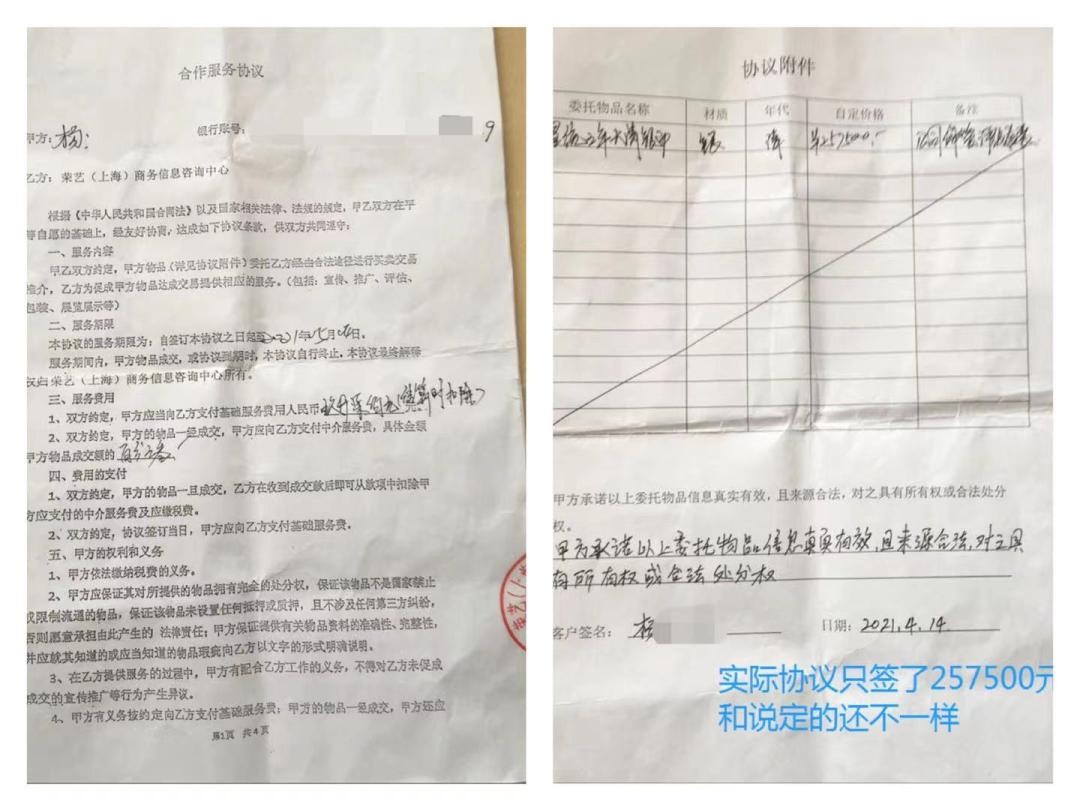 合作服务协议
甲方：杨
银行账号：
9
乙方：荣艺（上海）商务信息咨询中心
根据《中华人民共和国合同法》以及国家相关法律、法规的规定，甲乙双方在平
等自愿的基础上，经友好协商，达成如下协议条款，供双方共同遵守：
一、服务内容
甲乙双方约定，甲方物品（详见协议附件）委托乙方经由合法途径进行买卖交易
推介，乙方为促成甲方物品达成交易提供相应的服务。（包括：宣传、推广、评估、
包装、展览展示等）
二、服务期限
本协议的服务期限为：自签订本协议之日起至2021年 月 日。
服务期间内，甲方物品成交，或协议到期时，本协议自行终止，本协议最终解释
权归荣艺（上海）商务信息咨询中心所有。
三、服务费用
1、双方约定，甲方应当向乙方支付基础服务费用人民币 结算时扣除
2、双方约定，甲方的物品一经成交，甲方应向乙方支付中介服务费，具体金额
甲方物品成交额的百分之叁
四、费用的支付
1、双方约定，甲方的物品一旦成交，乙方在收到成交款后即可从款项中扣除甲
方应支付的中介服务费及应缴税费。
2、双方约定，协议签订当日，甲方应向乙方支付基础服务费。
五、甲方的权利和义务
1、甲方依法缴纳税费的义务。
2、甲方应保证其对所提供的物品拥有完全的处分权，保证该物品不是国家禁止
或限制流通的物品，保证该物品未设置任何抵押或质押，且不涉及任何第三方纠纷，
否则愿意承担由此产生的 法律责任；甲方保证提供有关物品资料的准确性、完整性，
并应就其知道的或应当知道的物品瑕疵向乙方以文字的形式明确说明。
3、在乙方提供服务的过程中，甲方有配合乙方工作的义务，不得对乙方未促成
成交的宣传推广等行为产生异议。
4、甲方有义务按约定向乙方支付基础服务费；甲方的物品一经成交，甲方还应
第1页 共4页
协议附件
委托物品名称 材质 年代 自定价格 备注
宣统三年大清银币 银 清 ¥257500.
甲方承诺以上委托物品信息真实有效，且来源合法，对之具有所有权或合法处分
权。
甲方承诺以上委托物品信息真实有效，且来源合法，对之具
有所有权或合法处分权
客户签名：杨
日期：2021.4.14
实际协议只签了257500元
和说定的还不一样